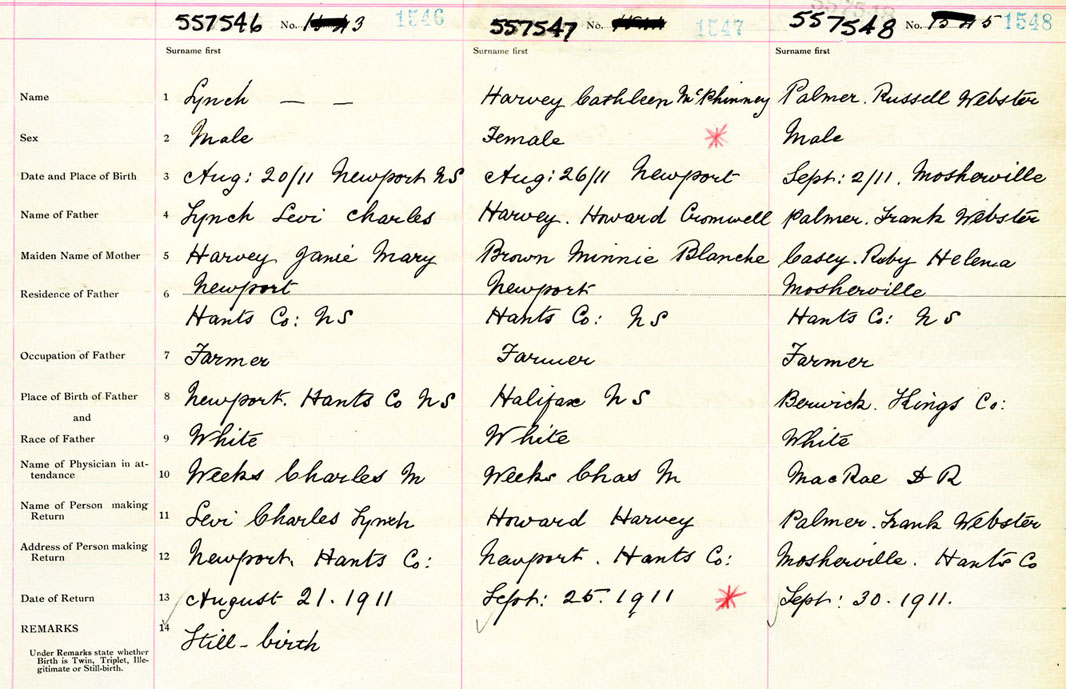 557546 No. 3 1546 557547 No. 1547 557548 No. 5 1548
Surname first Surname first Surname first
Name 1 Lynch — — Harvey Cathleen McPhinney Palmer. Russell Webster
Sex 2 Male Female Male
Date and Place of Birth 3 Aug: 20/11 Newport NS Aug: 26/11 Newport Sept: 2/11. Mosherville
Name of Father 4 Lynch Levi Charles Harvey. Howard Cromwell Palmer. Frank Webster
Maiden Name of Mother 5 Harvey Janie Mary Brown Minnie Blanche Casey. Ruby Helena
Residence of Father 6 Newport Newport Mosherville
Hants Co: NS Hants Co: NS Hants Co: NS
Occupation of Father 7 Farmer Farmer Farmer
Place of Birth of Father 8 Newport. Hants Co NS Halifax NS Berwick. Kings Co:
and
Race of Father 9 White White White
Name of Physician in at-
tendance 10 Weeks Charles M Weeks Chas M MacRae D R
Name of Person making
Return 11 Levi Charles Lynch Howard Harvey Palmer. Frank Webster
Address of Person making
Return 12 Newport. Hants Co: Newport. Hants Co: Mosherville. Hants Co
Date of Return 13 August 21. 1911 Sept: 25. 1911 Sept: 30. 1911.
REMARKS 14 Still-birth
Under Remarks state whether
Birth is Twin, Triplet, Ille-
gitimate or Still-birth.